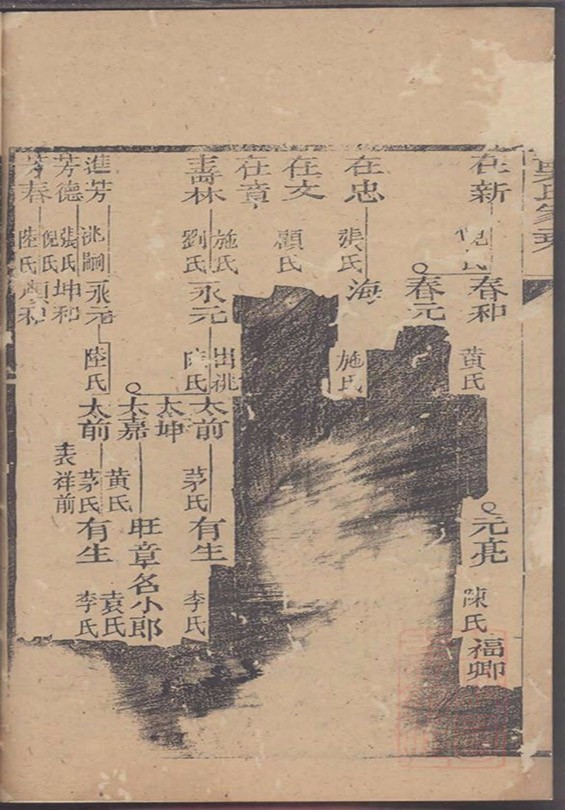 氏家
在新
倪氏
春和
黄氏
春元
元亮
陳氏
福卿
在忠
張氏
海
施氏
在文
顧氏
在章
壽林
施氏
劉氏
永元
出桃
氏
太前
茅氏
有生
李氏
太坤
太嘉
黄氏
旺章名小郎
袁氏
進芳
祧嗣
永元
陸氏
太前
茅氏
表祥前
有生
李氏
芳德
張氏
倪氏
坤和
芳春
陸氏
和